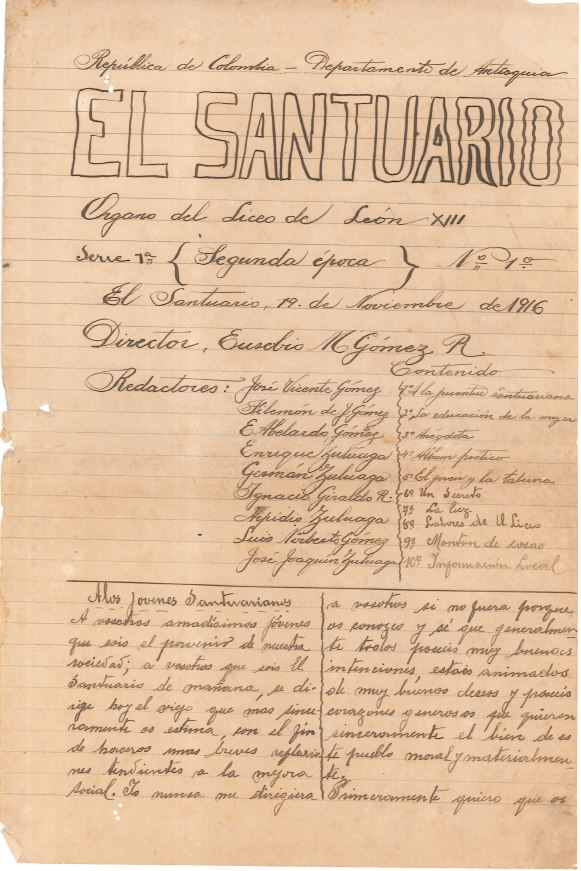 República de Colombia - Departamento de Antioquia
EL SANTUARIO
Organo del Liceo de León XIII
Serie 1ª { Segunda época } Nº 1º
El Santuario, 19. de Noviembre de 1916
Director, Eusebio M. Gómez R.
Contenido
Redactores:
José Vicente Gómez
Filemón de J. Gómez
E. Abelardo Gómez
Enrique Zuluaga
Germán Zuluaga
Ignacio Giraldo R.
Nepidio Zuluaga
Luis Norberto Gómez
José Joaquín Zuluaga
1º A la juventud santuariana
2º La educación de la mujer
3º Anécdota
4º Album poético
5º El joven y la taberna
6º Un Secreto
7º La Luz
8º Labores de El Liceo
9º Montón de cosas
10º Información Local
A los Jovenes Santuarianos
A vosotros amadísimos jóvenes
que sois el porvenir de nuestra
sociedad; a vosotros que sois El
Santuario de mañana, se di-
rige hoy el viejo que mas since-
ramente os estima, con el fin
de haceros unas breves reflexio
nes tendientes a la mejora
social. Yo nunca me dirigiera
a vosotros si no fuera porque
os conozco y sé que generalmen-
te todos poseis muy buenas
intenciones, estais animados
de muy buenos deseos y poseis
corazones generosos que quieren
sinceramente el bien de es
te pueblo moral y materialmen-
te.
Primeramente quiero que os